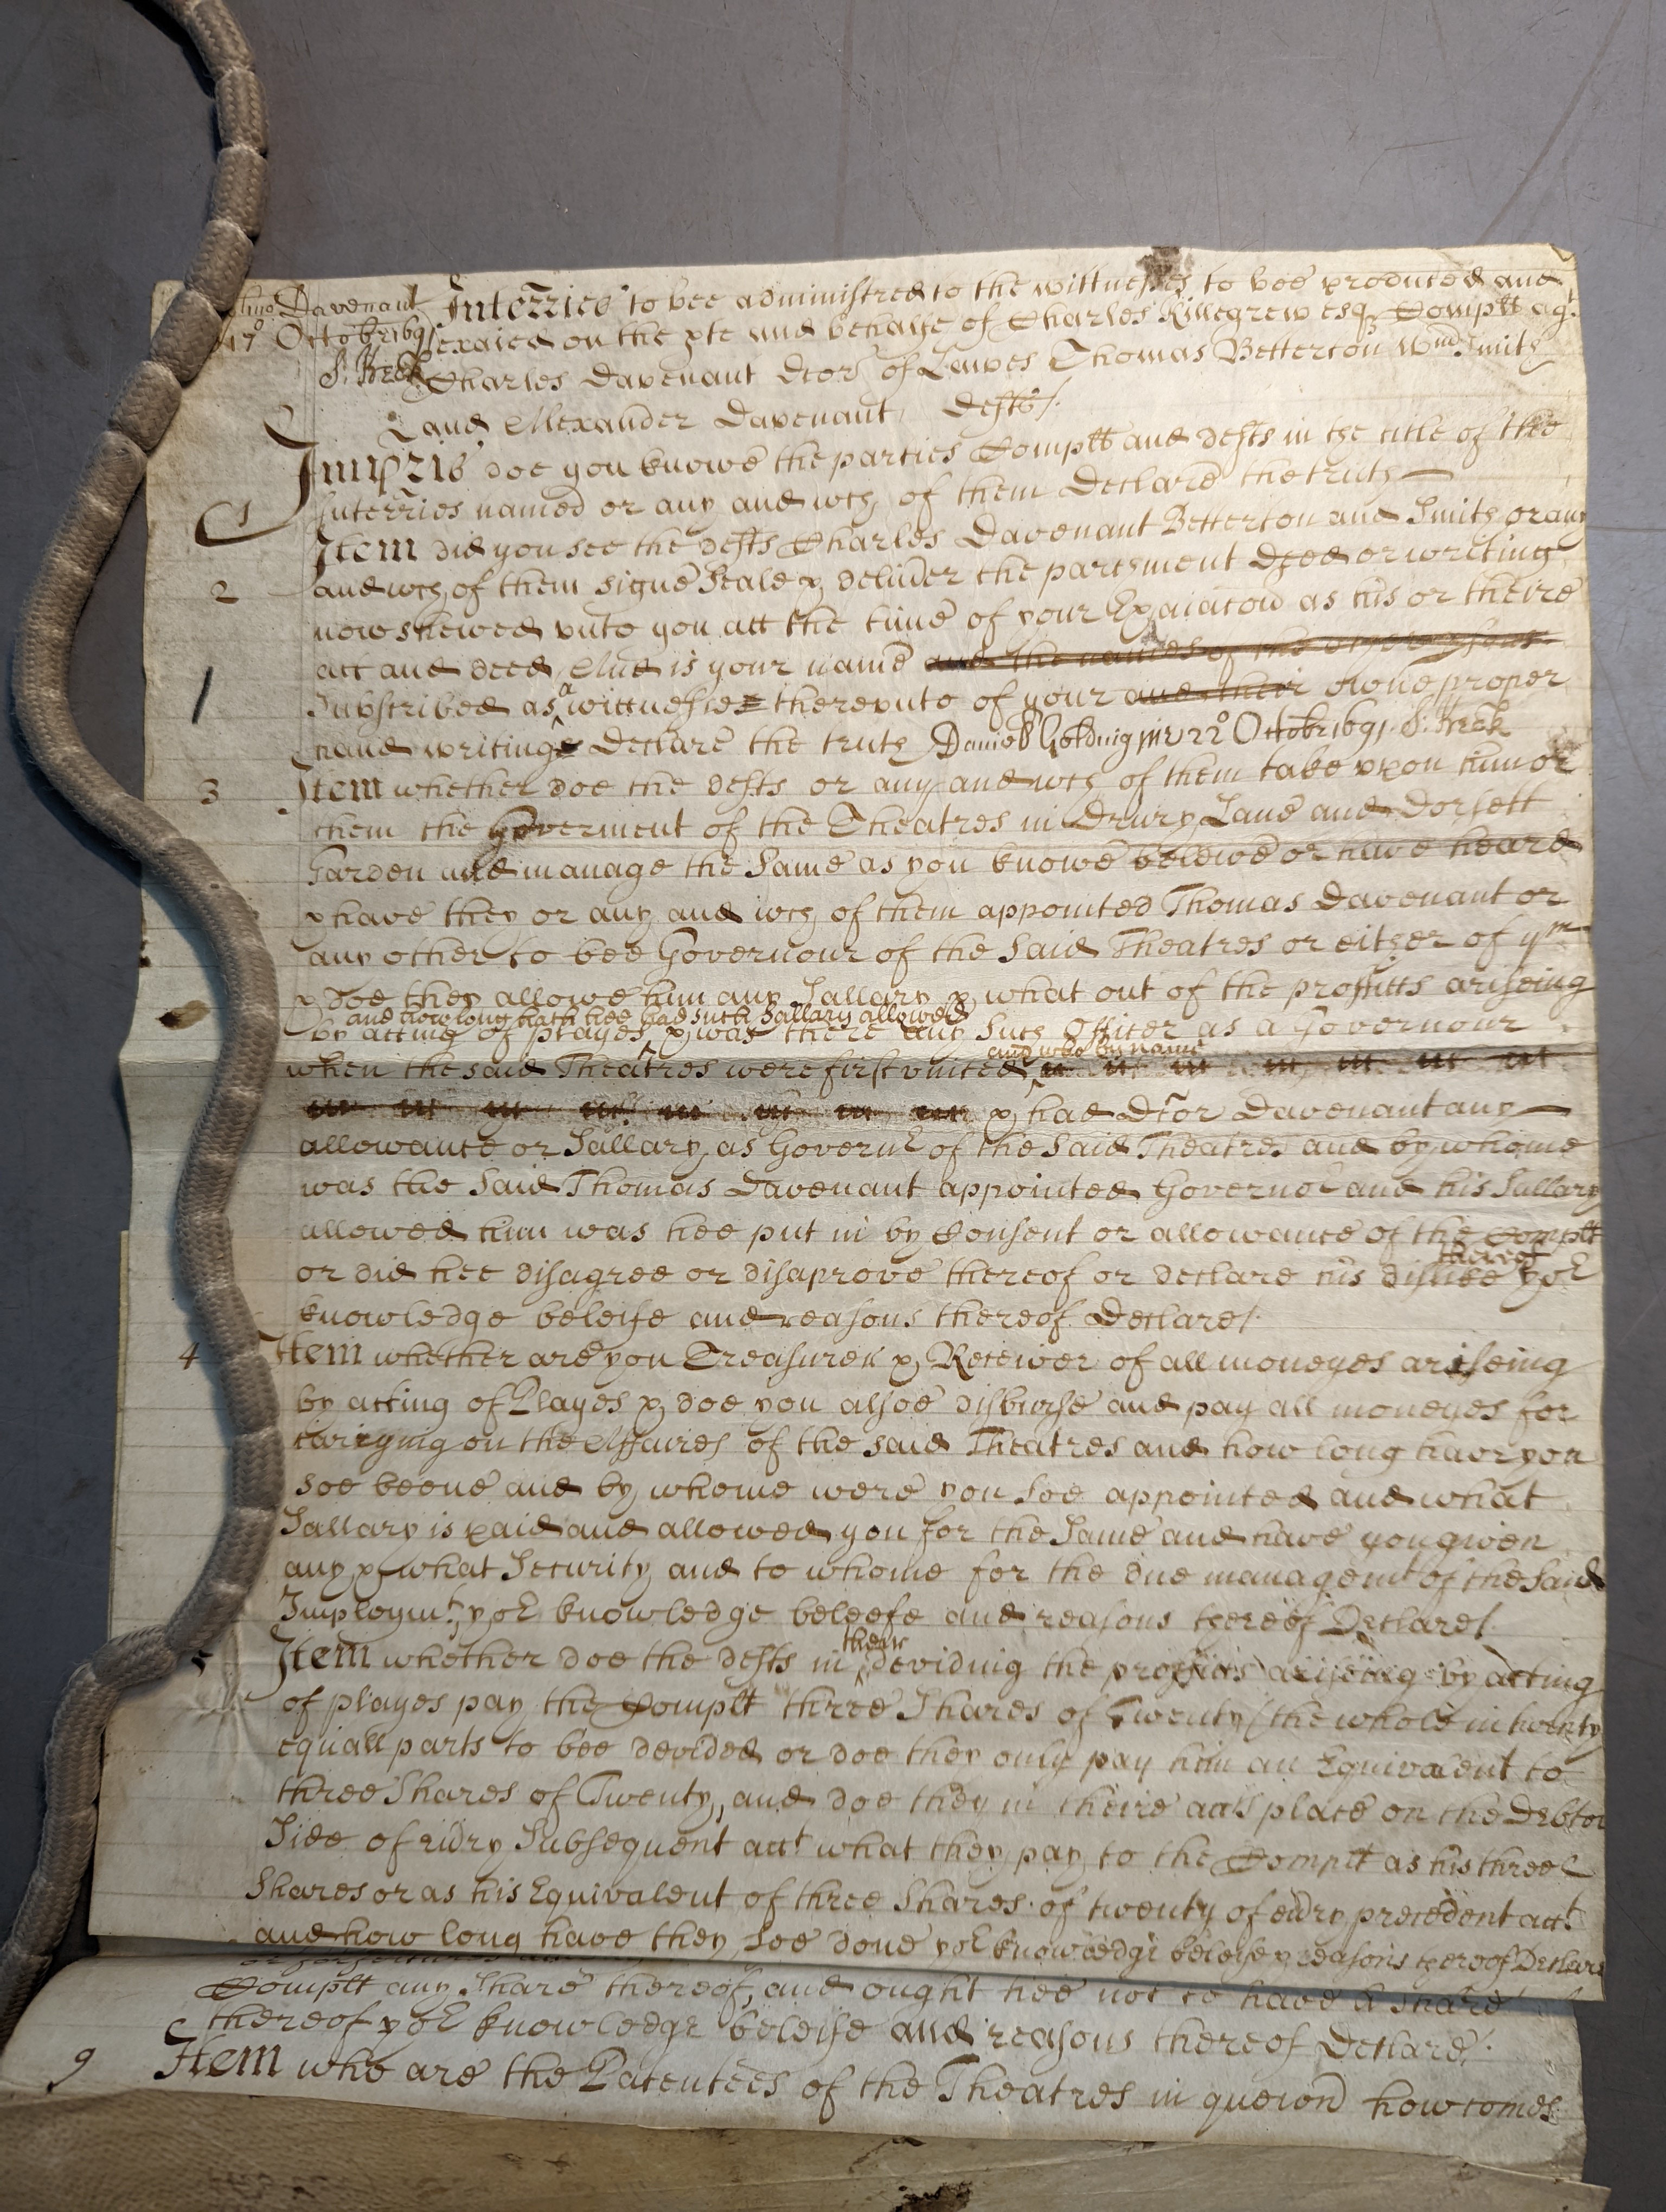 Davenant Interries to bee administred to the wittnesses to bee produced and
17° Octobr 1691 exaied on the pte and behalfe of Charles Killegrew esqr Complt agt
S: Keck Charles Davenant Dcor of Lawes Thomas Betterton Wm Smith
and Alexander Davenant Defts /.
Impris doe you knowe the parties Complt and defts in the title of these
1 Interries named or any and wch of them Declare the truth
2 Item did you see the defts Charles Davenant Betterton and Smith or any
and wch of them signe Seale & deliver the parchment Deed or writing
now shewed unto you att the time of your Exaiacon as his or theire
act and deed And is your name and the names of the other persons
1 Subscribed as a wittnesse thereunto of your and their owne proper
hand writing Declare the truth Daniel Golding jur 22° Octobr 1691. S: Keck
3 Item whether doe the defts or any and wch of them take upon him or
them the Goverment of the Theatres in Drury Lane and Dorsett
Garden and manage the Same as you knowe beleive or have heard
& have they or any and wch of them appointed Thomas Davenant or
any other to bee Governour of the Said Theatres or either of ym
& doe they allowe him any Sallary & what out of the proffitts ariseing
and how long hath hee had such Sallary allowed
by acting of playes & was there any such Officer as a Governour
and who by name
when the said Theatres were first united
& had Dcor Davenant any
allowance or Sallary as Governr of the Said Theatres and by whome
was the Said Thomas Davenant appointed Governor and his Sallary
allowed him was hee put in by Consent or allowance of the Complt
thereof
or did hee disagree or disaprove thereof or declare his dislike yor
knowledge beleife and reasons thereof Declare /.
4 Item whether are you Treasurer & Receiver of all moneyes ariseing
by acting of Playes & doe you alsoe disburse and pay all moneyes for
carrying on the Affaires of the said Theatres and how long have you
soe beene and by whome were you soe appointed and what
Sallary is paid and allowed you for the Same and have you given
any & what Security and to whome for the due managemt of the Said
Imploymt yor knowledge beleefe and reasons thereof Declare /.
their
5 Item whether doe the defts in deviding the proffitts ariseing by acting
of playes pay the Complt three Shares of Twenty (the whole in twenty
equall parts to bee devided or doe they only pay him an Equivalent to
three Shares of Twenty, and doe they in theire accts place on the Debtor
Side of every Subsequent acct what they pay to the Complt as his three
Shares or as his Equivalent of three Shares of twenty of every precedent acct
and how long have they soe done yor knowledge beleife & reasons thereof Declare
Complt any Share thereof, and ought hee not to have a share
thereof yor knowledge beleife and reasons thereof Declare /.
9 Item who are the Patentees of the Theatres in queion how comes